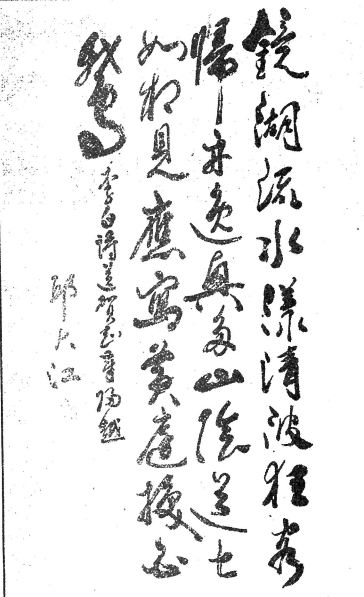 鏡湖流水漾清波狂客
歸舟逸興多山陰道士
如相見應寫黃庭換白
鵝 李白詩送賀知章歸越
江